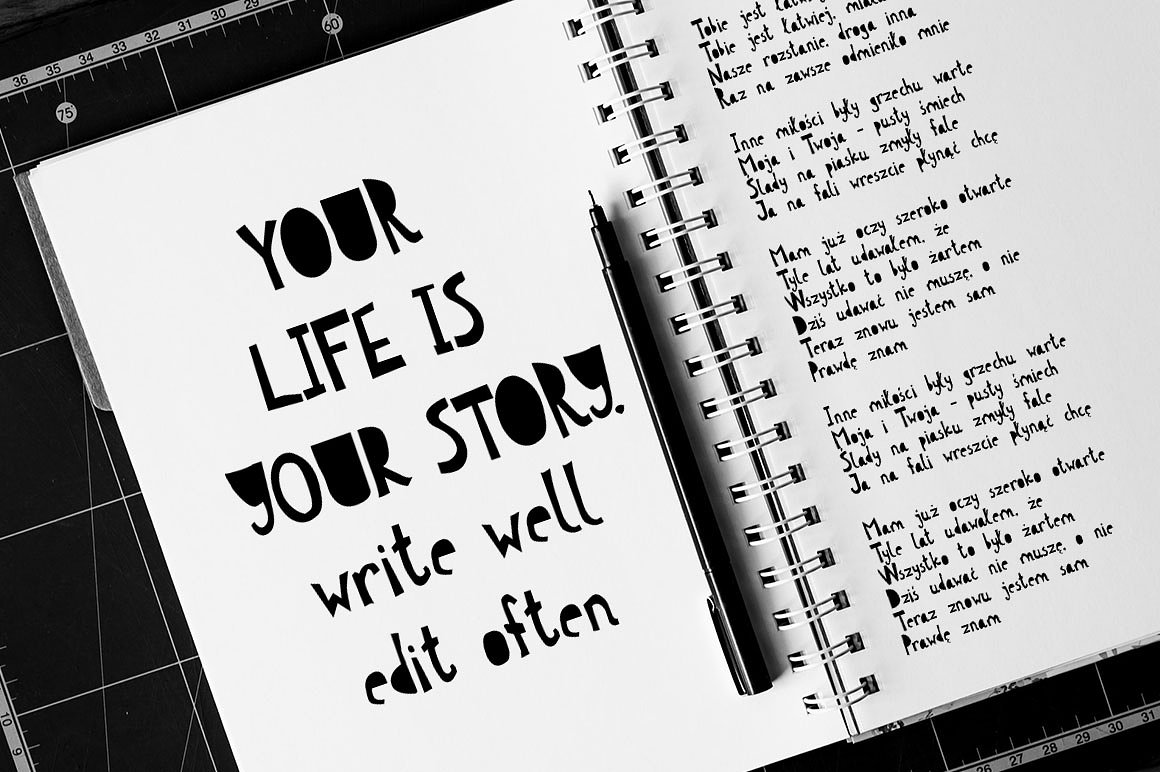 YOUR
LIFE IS
YOUR STORY.
write well
edit often
Tobie jest łatwiej
Tobie jest łatwiej,
Nasze rozstanie, droga inna
Raz na zawsze odmieniło mnie
Inne miłości były grzechu warte
Moja i Twoja - pusty śmiech
Ślady na piasku zmyły fale
Ja na fali wreszcie płynąć chcę
Mam już oczy szeroko otwarte
Tyle lat udawałem, że
Wszystko to było żartem
Dziś udawać nie muszę, o nie
Teraz znowu jestem sam
Prawdę znam
Inne miłości były grzechu warte
Moja i Twoja - pusty śmiech
Ślady na piasku zmyły fale
Ja na fali wreszcie płynąć chcę
Mam już oczy szeroko otwarte
Tyle lat udawałem, że
Wszystko to było żartem
Dziś udawać nie muszę, o nie
Teraz znowu jestem sam
Prawdę znam
36 35 34 33 32 31 30 29
60
75
10 9
26 27 28 29 30 31